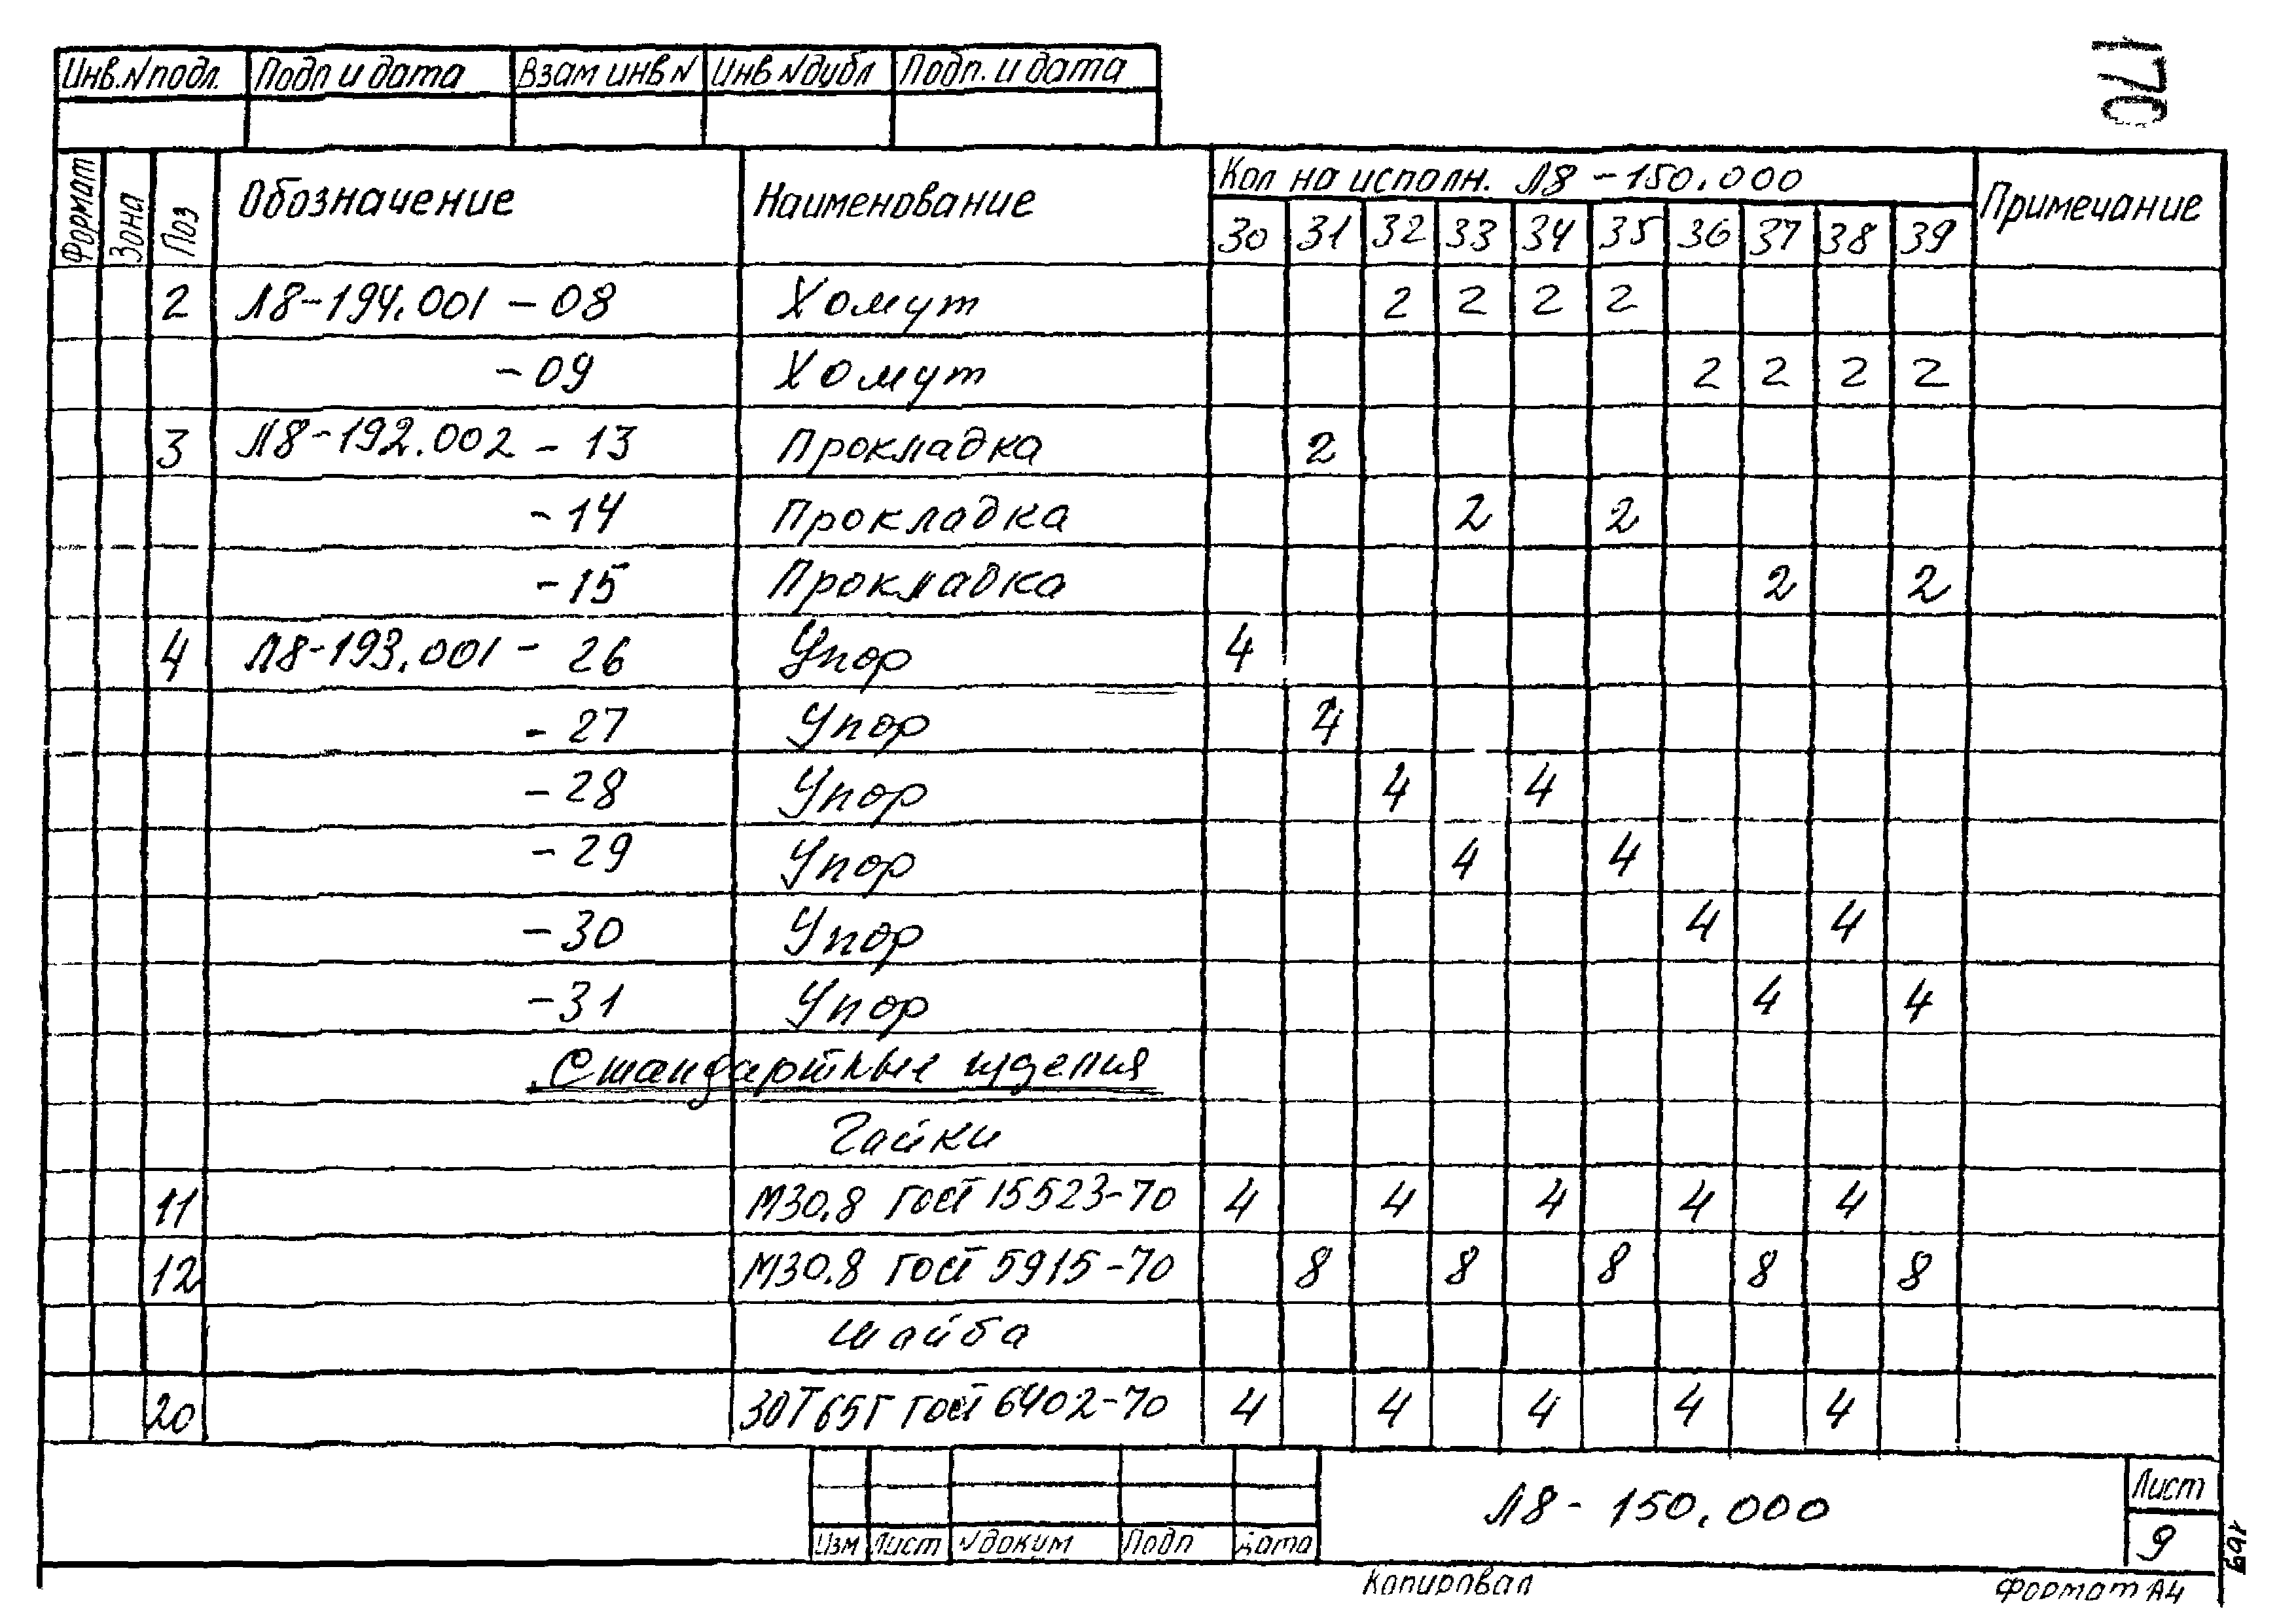 170
Инв.№подл. Подп и дата Взам инв № Инв №дубл Подп. и дата
Формат Зона Поз Обозначение Наименование Кол на исполн. Л8-150.000 Примечание
30 31 32 33 34 35 36 37 38 39
2 Л8-194.001 - 08 Хомут 2 2 2 2
-09 Хомут 2 2 2 2
3 Л8-192.002 - 13 Прокладка 2
-14 Прокладка 2 2
-15 Прокладка 2 2
4 Л8-193.001 - 26 Упор 4
- 27 Упор 4
- 28 Упор 4 4
- 29 Упор 4 4
- 30 Упор 4 4
- 31 Упор 4 4
Стандартные изделия
Гайки
11 М30.8 ГОСТ 15523-70 4 4 4 4 4
12 М30.8 ГОСТ 5915-70 8 8 8 8 8
Шайба
20 30Т 65Г ГОСТ 6402-70 4 4 4 4 4
Изм Лист №докум Подп Дата
Л8-150.000
Лист
9
169
Копировал
Формат А4